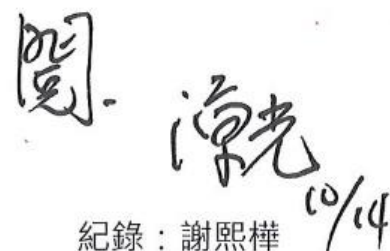 閱.
10/14
紀錄：謝熙樺